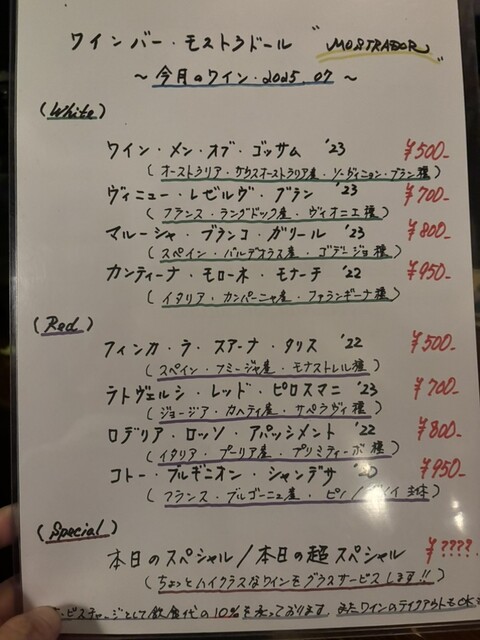 ワインバー・モストラドール "MOSTRADOR"
～ 今月のワイン・2025.07 ～
(White)
ワイン・メン・オブ・ゴッサム '23 ¥500-
(オーストラリア・サウスオーストラリア産・ソーヴィニョン・ブラン種)
ヴィニュー・レゼルヴ・ブラン '23 ¥700-
(フランス・ラングドック産・ヴィオニエ種)
マルーシャ・ブランコ・ガリール '23 ¥800-
(スペイン・バルデオラス産・ゴデージョ種)
カンティーナ・モローネ・モナーチ '22 ¥950-
(イタリア・カンパーニャ産・ファランギーナ種)
(Red)
フィンカ・ラ・スアーナ・タリス '22 ¥500-
(スペイン・フミージャ産・モナストレル種)
ラトヴェルシ・レッド・ピロスマニ '23 ¥700-
(ジョージア・カヘティ産・サペラヴィ種)
ロデリア・ロッソ・アパッシメント '22 ¥800-
(イタリア・プーリア産・プリミティーボ種)
コトー・ブルギニオン・シャンデサ '20 ¥950-
(フランス・ブルゴーニュ産・ピノ/ 主体)
(Special)
本日のスペシャル/本日の超スペシャル ¥????-
(ちょっとハイクラスなワインをグラスサービスします!!)
サービスチャージとして飲食代の10%を承っております。またワインのテイクアウトもOK